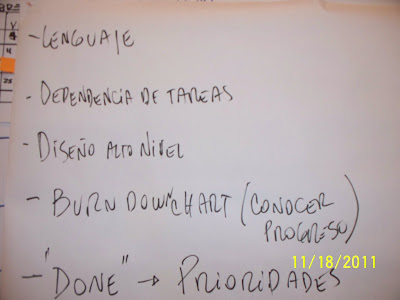 - LENGUAJE
- DEPENDENCIA DE TAREAS
- DISEÑO ALTO NIVEL
- BURN DOWN CHART (CONOCER
PROGRESO)
11/18/2011
- "DONE" → PRIORIDADES